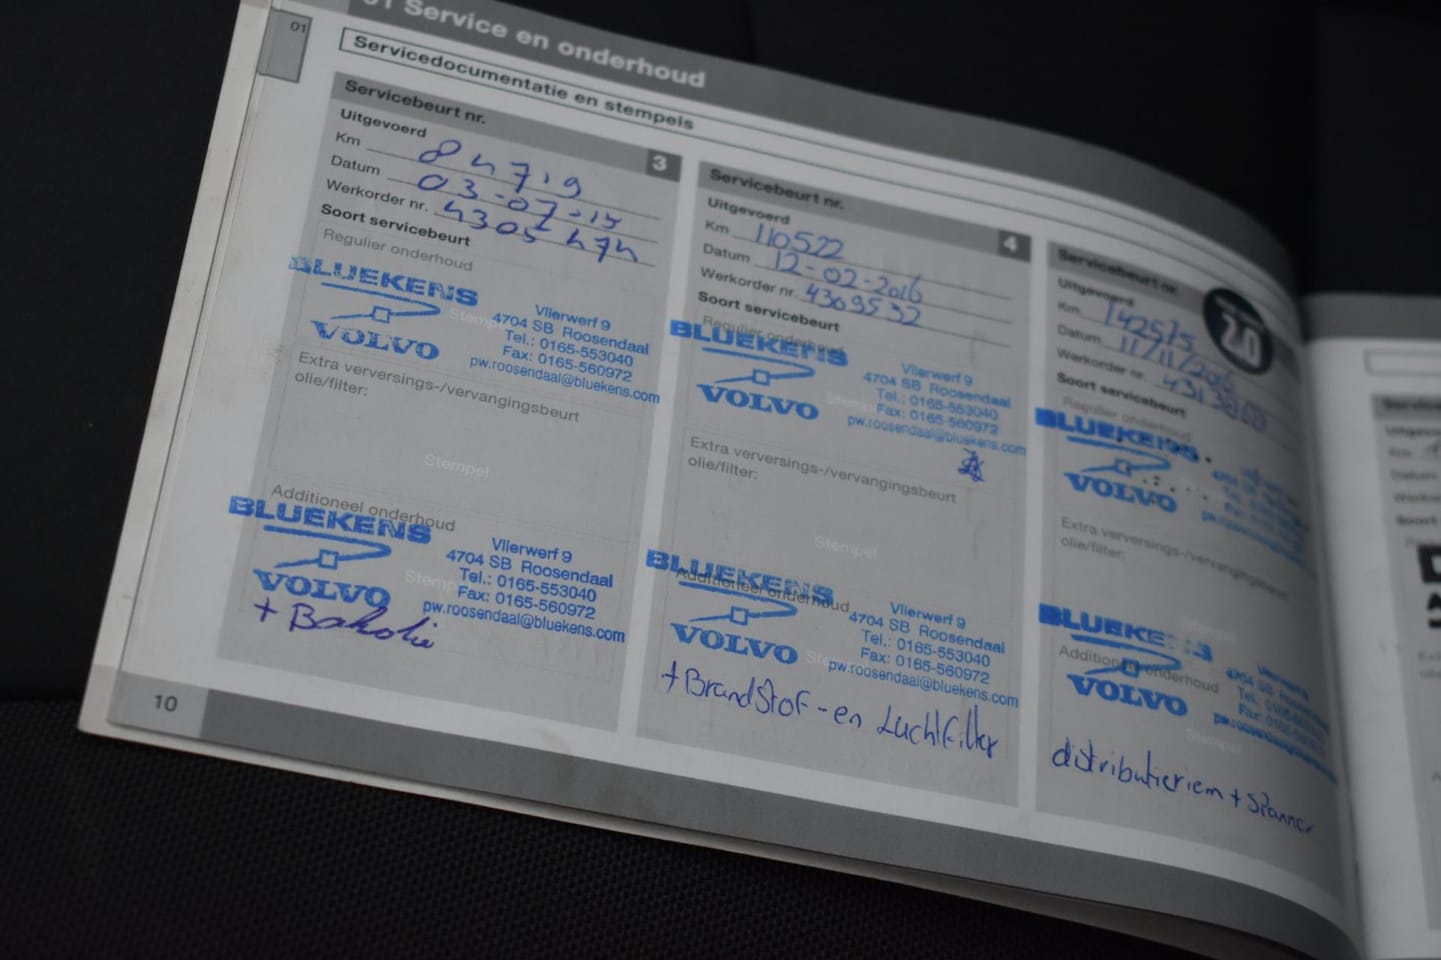 01 Service en onderhoud
01
Servicedocumentatie en stempels
Servicebeurt nr. 3
Uitgevoerd
Km 84719
Datum 03-07-15
Werkorder nr. 4305474
Soort servicebeurt
Regulier onderhoud
BLUEKENS
VOLVO
Stempel
Vlierwerf 9
4704 SB Roosendaal
Tel.: 0165-553040
Fax: 0165-560972
pw.roosendaal@bluekens.com
Extra verversings-/vervangingsbeurt
olie/filter:
Stempel
Additioneel onderhoud
BLUEKENS
VOLVO
Stempel
Vlierwerf 9
4704 SB Roosendaal
Tel.: 0165-553040
Fax: 0165-560972
pw.roosendaal@bluekens.com
+ Bakolie
10
Servicebeurt nr. 4
Uitgevoerd
Km 110522
Datum 12-02-2016
Werkorder nr. 4309532
Soort servicebeurt
Regulier onderhoud
BLUEKENS
VOLVO
Vlierwerf 9
4704 SB Roosendaal
Tel.: 0165-553040
Fax: 0165-560972
pw.roosendaal@bluekens.com
Extra verversings-/vervangingsbeurt
olie/filter:
Stempel
Additioneel onderhoud
BLUEKENS
VOLVO
Vlierwerf 9
4704 SB Roosendaal
Tel.: 0165-553040
Fax: 0165-560972
pw.roosendaal@bluekens.com
+ BrandStof - en Luchtfilter
Servicebeurt nr.
2.0
Uitgevoerd
Km 142575
Datum 11/11/2016
Werkorder nr.
Soort servicebeurt
Regulier onderhoud
BLUEKENS
VOLVO
Extra verversings-/vervangingsbeurt
olie/filter:
Stempel
Additioneel onderhoud
BLUEKENS
VOLVO
Vlierwerf 9
4704 SB Roosendaal
Stempel
distributieriem + Spanner